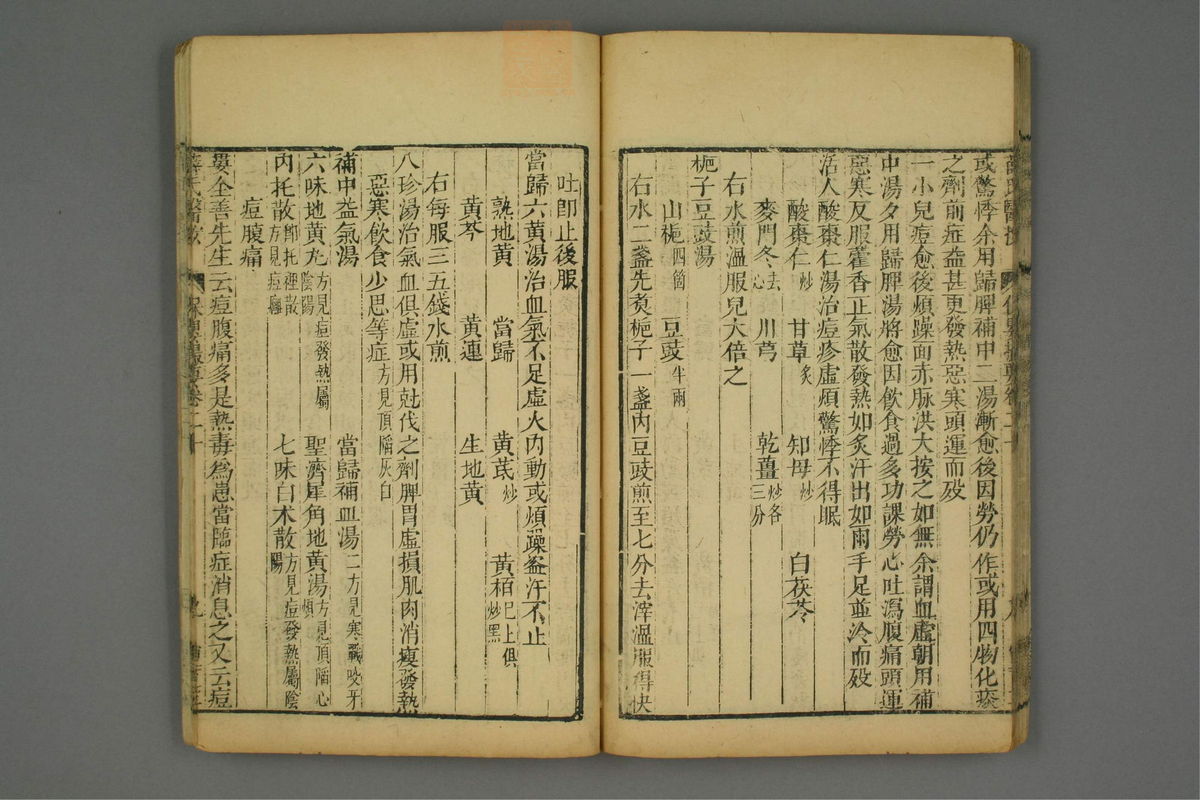 或驚悸余用歸脾補中二湯漸愈後因勞仍作或用四物化痰
之劑前症益甚更發熱惡寒頭運而殁
一小兒痘愈後煩躁面赤脉洪大按之如無余謂血虛朝用補
中湯夕用歸脾湯將愈因飲食過多功課勞心吐瀉腹痛頭運
惡寒反服藿香正氣散發熱如炙汗出如雨手足並冷而殁
活人酸棗仁湯治痘疹虛煩驚悸不得眠
酸棗仁炒 甘草炙 知母炒 白茯苓
麥門冬去心 川芎 乾薑炒各三分
右水煎溫服兒大倍之
梔子豆豉湯
山梔四箇 豆豉半兩
右水二盞先煑梔子一盞內豆豉煎至七分去滓溫服得快
吐卽止後服
當歸六黃湯治血氣不足虛火內動或煩躁盜汗不止
熟地黃 當歸 黃芪炒 黃栢炒黑已上俱
黃芩 黃連 生地黃
右每服三五錢水煎
八珍湯治氣血俱虛或用尅伐之劑脾胃虛損肌肉消瘦發熱
惡寒飲食少思等症方見頂陷灰白
補中益氣湯 當歸補血湯二方見寒戰咬牙
六味地黃丸方見痘發熱屬陰陽 聖濟犀角地黃湯方見頂陷心煩
內托散方見痘癰卽托裡散 七味白术散方見痘發熱屬陰陽
痘腹痛
婁全善先生云痘腹痛多是熱毒爲患當臨症消息之又云痘